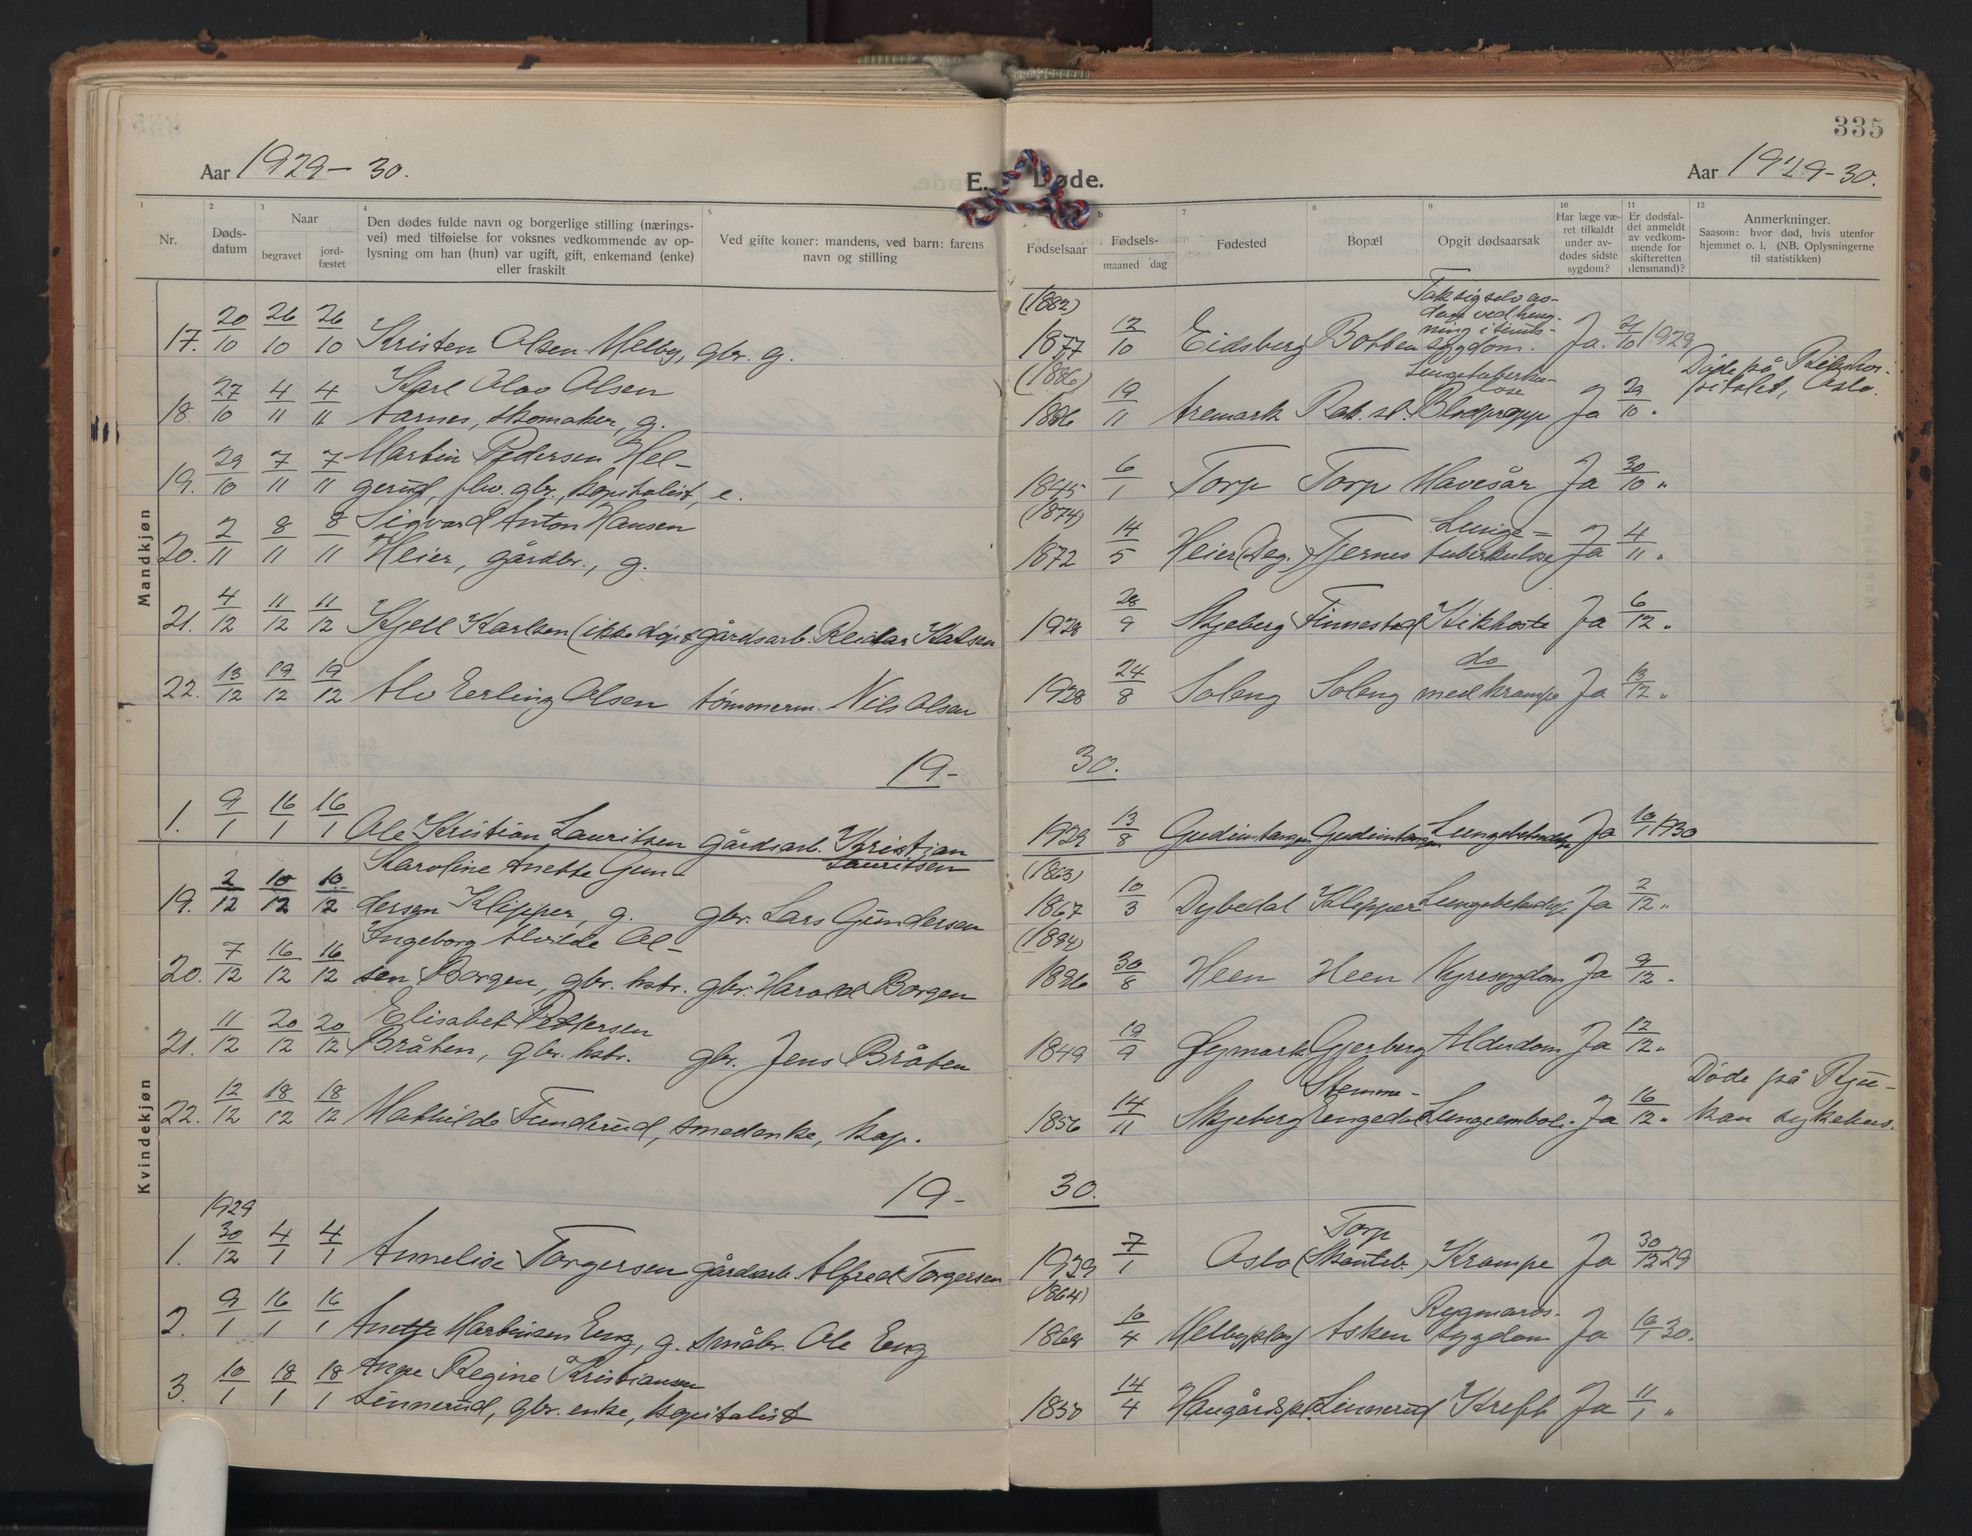 335
Aar 1929-30.
E. Døde.
Aar 1929-30.
1 2 3 4 5 6 7 8 9 10 11 12
Nr.
Døds-
datum
Naar
begravet
jord-
fæstet
Den dødes fulde navn og borgerlige stilling (nærings-
vei) med tilføielse for voksnes vedkommende av op-
lysning om han (hun) var ugift, gift, enkemand (enke)
eller fraskilt
Ved gifte koner: mandens, ved barn: farens
navn og stilling
Fødselsaar
Fødsels-
maaned dag
Fødested
Bopæl
Opgit dødsaarsak
Har læge væ-
ret tilkaldt
under av-
dødes sidste
sygdom?
Er dødsfal-
det anmeldt
av vedkom-
mende for
skifteretten
(lensmand)?
Anmerkninger.
Saasom: hvor død, hvis utenfor
hjemmet o. l. (NB. Oplysningerne
til statistikken)
Mandkjøn
(1882) Tok sig selv av-
dage ved heng-
ning i sinds-
17. 20/10 26/10 26/10 Kristen Olsen Melby, gbr. g. 1877 12/10 Eidsberg Botten sygdom. Ja. 21/10 1929
(1886) Lungetuberku-
lose Døde på Rikshos-
18. 27/10 4/11 4/11 Karl Olav Olsen
Aarnes, skomaker, g. 1886 19/11 Aremark Rak. st. Blodpropp Ja 29/10 " pitalet, Oslo.
19. 29/10 7/11 7/11 Martin Pedersen Hel-
gerud, fhv. gbr., kapitalist, e. 1845 6/1 Torp Torp Mavesår Ja 30/10 "
(1874)
20. 2/11 8/11 8/11 Sigvard Anton Hansen
Heier, gårdbr., g. 1872 14/5 Heier (Deg.) Tjernes Lunge-
tuberkulose Ja 4/11 "
21. 4/12 11/12 11/12 Kjell Karlsen (ikke døpt gårdsarb. Reidar Karlsen 1928 28/9 Skjeberg Finnestad Kikhoste Ja 6/12 "
22. 13/12 19/12 19/12 Alv Erling Olsen tømmerm. Nils Olsen 1928 24/8 Soleng Soleng do
med krampe Ja 13/12 "
19- 30.
1. 9/1 16/1 16/1 Ole Kristian Lauritsen gårdsarb. Kristian
Lauritsen 1929 13/8 Gudimtangen Gudimtangen Lungebetendelse Ja 10/1 1930
Kvindekjøn
(1863)
19. 2/12 10/12 10/12 Karoline Anette Gun-
dersen Klepper, g. gbr. Lars Gundersen 1867 10/3 Dybedal Klepper Lungebetendelse Ja 2/12 "
(1894)
20. 7/12 16/12 16/12 Ingeborg Alvilde Ol-
sen Borgen, gbr. kstr. gbr. Harald Borgen 1896 30/8 Heen Heen Nyresygdom Ja 9/12 "
21. 11/12 20/12 20/12 Elisabet Pettersen
Bråten, gbr. kstr. gbr. Jens Bråten 1849 19/9 Øymark Gjerberg Alderdom Ja 12/12 "
22. 12/12 18/12 18/12 Mathilde Funderud, smedenke, kap. 1856 14/11 Skjeberg Stemme-
engedal Lungeemboli. Ja 16/12 " Døde på Rju-
kan sykehus.
19- 30.
1929
1. 30/12 4/1 4/1 Annelise Torgersen gårdsarb. Alfred Torgersen 1929 7/1 Oslo Torp
(Skauteb.) Krampe Ja 30/12 29
(1864)
2. 9/1 16/1 16/1 Anette Martinsen Eng, g. småbr. Ole Eng 1868 10/4 Melbyplas) Asken Rygmarvs-
sygdom Ja 10/1 30.
3. 10/1 18/1 18/1 Anne Regine Kristiansen
Linnerud, gbr. enke, kapitalist 1850 14/4 Haugårdspl. Linnerud Kreft Ja 11/1 "